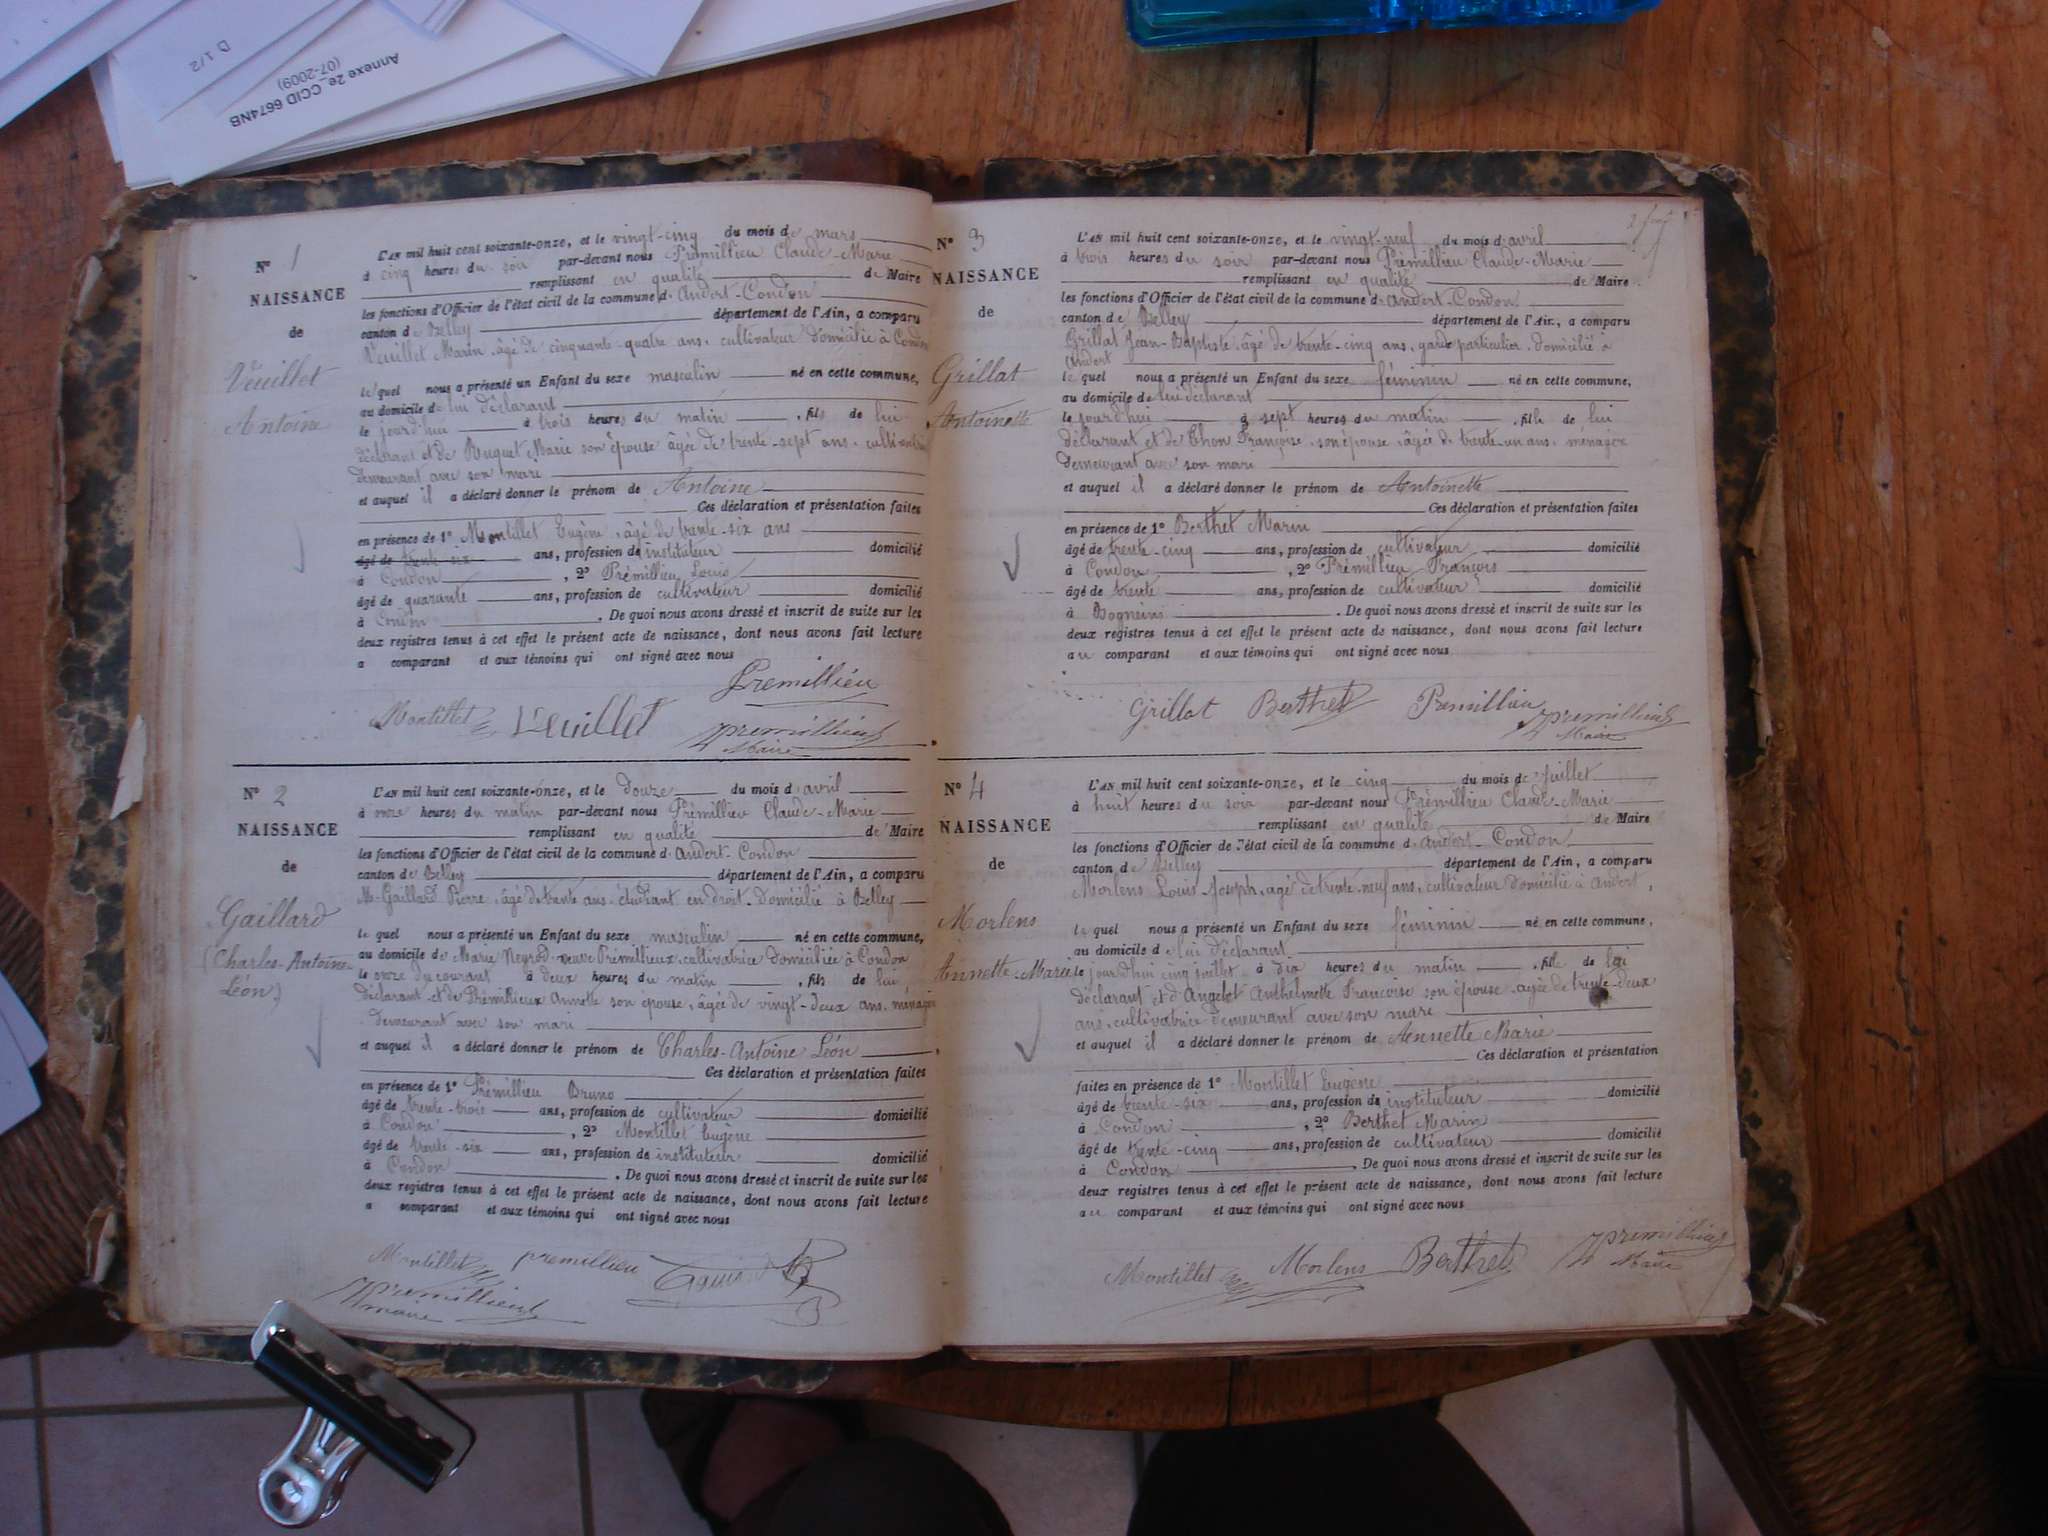 Annexe 2e_CCID 6674NB
(07-2009)
D 1/2
N° 1
NAISSANCE
de
Veuillet
Antoine
L'AN mil huit cent soixante-onze, et le vingt-cinq du mois de mars
à cinq heures du soir par-devant nous Prémillieu Claude-Marie
remplissant en qualité de Maire
les fonctions d'Officier de l'état civil de la commune d'Andert-Condon
canton de Belley département de l'Ain, a comparu
Veuillet Marin, âgé de cinquante-quatre ans, cultivateur domicilié à Condon
lequel nous a présenté un Enfant du sexe masculin né en cette commune,
au domicile de lui déclarant
le jourd'hui à trois heures du matin, fils de lui
déclarant et de Ruguet Marie son épouse âgée de trente-sept ans, cultivatrice
demeurant avec son mari
et auquel il a déclaré donner le prénom de Antoine
Ces déclaration et présentation faites
en présence de 1° Montillet Eugène, âgé de trente-six ans
âgé de trente-six ans, profession de instituteur domicilié
à Condon, 2° Prémillieu Louis
âgé de quarante ans, profession de cultivateur domicilié
à Condon. De quoi nous avons dressé et inscrit de suite sur les
deux registres tenus à cet effet le présent acte de naissance, dont nous avons fait lecture
a comparant et aux témoins qui ont signé avec nous
Premillieu
Montillet Veuillet Premillieu
Maire
N° 2
NAISSANCE
de
Gaillard
(Charles-Antoine
Léon)
L'AN mil huit cent soixante-onze, et le douze du mois d'avril
à onze heures du matin par-devant nous Prémillieu Claude-Marie
remplissant en qualité de Maire
les fonctions d'Officier de l'état civil de la commune d'Andert-Condon
canton de Belley département de l'Ain, a comparu
Mr Gaillard Pierre, âgé de trente ans, étudiant en droit, domicilié à Belley
lequel nous a présenté un Enfant du sexe masculin né en cette commune,
au domicile de Marie veuve Prémillieux cultivatrice domiciliée à Condon
le onze du courant à deux heures du matin, fils de lui
déclarant et de Prémillieux Annette son épouse, âgée de vingt-deux ans, ménagère
demeurant avec son mari
et auquel il a déclaré donner le prénom de Charles-Antoine Léon
Ces déclaration et présentation faites
en présence de 1° Prémillieu Bruno
âgé de trente-trois ans, profession de cultivateur domicilié
à Condon, 2° Montillet Eugène
âgé de trente-six ans, profession de instituteur domicilié
à Condon. De quoi nous avons dressé et inscrit de suite sur les
deux registres tenus à cet effet le présent acte de naissance, dont nous avons fait lecture
a comparant et aux témoins qui ont signé avec nous
Montillet premillieu
Premillieu
maire
N° 3
NAISSANCE
de
Grillat
Antoinette
L'AN mil huit cent soixante-onze, et le vingt-neuf du mois d'avril
à trois heures du soir par-devant nous Prémillieu Claude-Marie
remplissant en qualité de Maire
les fonctions d'Officier de l'état civil de la commune d'Andert-Condon
canton de Belley département de l'Ain, a comparu
Grillat Jean-Baptiste, âgé de trente-cinq ans, garde particulier, domicilié à
Andert
lequel nous a présenté un Enfant du sexe féminin né en cette commune,
au domicile de lui déclarant
le jourd'hui à sept heures du matin, fille de lui
déclarant et de Thon Françoise, son épouse, âgée de trente-un ans, ménagère
demeurant avec son mari
et auquel il a déclaré donner le prénom de Antoinette
Ces déclaration et présentation faites
en présence de 1° Berthet Marin
âgé de trente-cinq ans, profession de cultivateur domicilié
à Condon, 2° Prémillieu François
âgé de trente ans, profession de cultivateur domicilié
à Bognens. De quoi nous avons dressé et inscrit de suite sur les
deux registres tenus à cet effet le présent acte de naissance, dont nous avons fait lecture
au comparant et aux témoins qui ont signé avec nous
Grillat Berthet Premillieu Premillieu
Maire
N° 4
NAISSANCE
de
Morlens
Annette-Marie
L'AN mil huit cent soixante-onze, et le cinq du mois de juillet
à huit heures du soir par-devant nous Prémillieu Claude-Marie
remplissant en qualité de Maire
les fonctions d'Officier de l'état civil de la commune d'Andert-Condon
canton de Belley département de l'Ain, a comparu
Morlens Louis-Joseph, âgé de trente-neuf ans, cultivateur domicilié à Andert,
lequel nous a présenté un Enfant du sexe féminin né en cette commune,
au domicile de lui déclarant
le jourd'hui cinq juillet à dix heures du matin, fille de lui
déclarant et d'Angelet Anthelmette Françoise son épouse âgée de trente-deux
ans, cultivatrice demeurant avec son mari
et auquel il a déclaré donner le prénom de Annette Marie
Ces déclaration et présentation
faites en présence de 1° Montillet Eugène
âgé de trente-six ans, profession de instituteur domicilié
à Condon, 2° Berthet Marin
âgé de trente-cinq ans, profession de cultivateur domicilié
à Condon. De quoi nous avons dressé et inscrit de suite sur les
deux registres tenus à cet effet le présent acte de naissance, dont nous avons fait lecture
au comparant et aux témoins qui ont signé avec nous
Montillet Morlens Berthet Premillieu
Maire